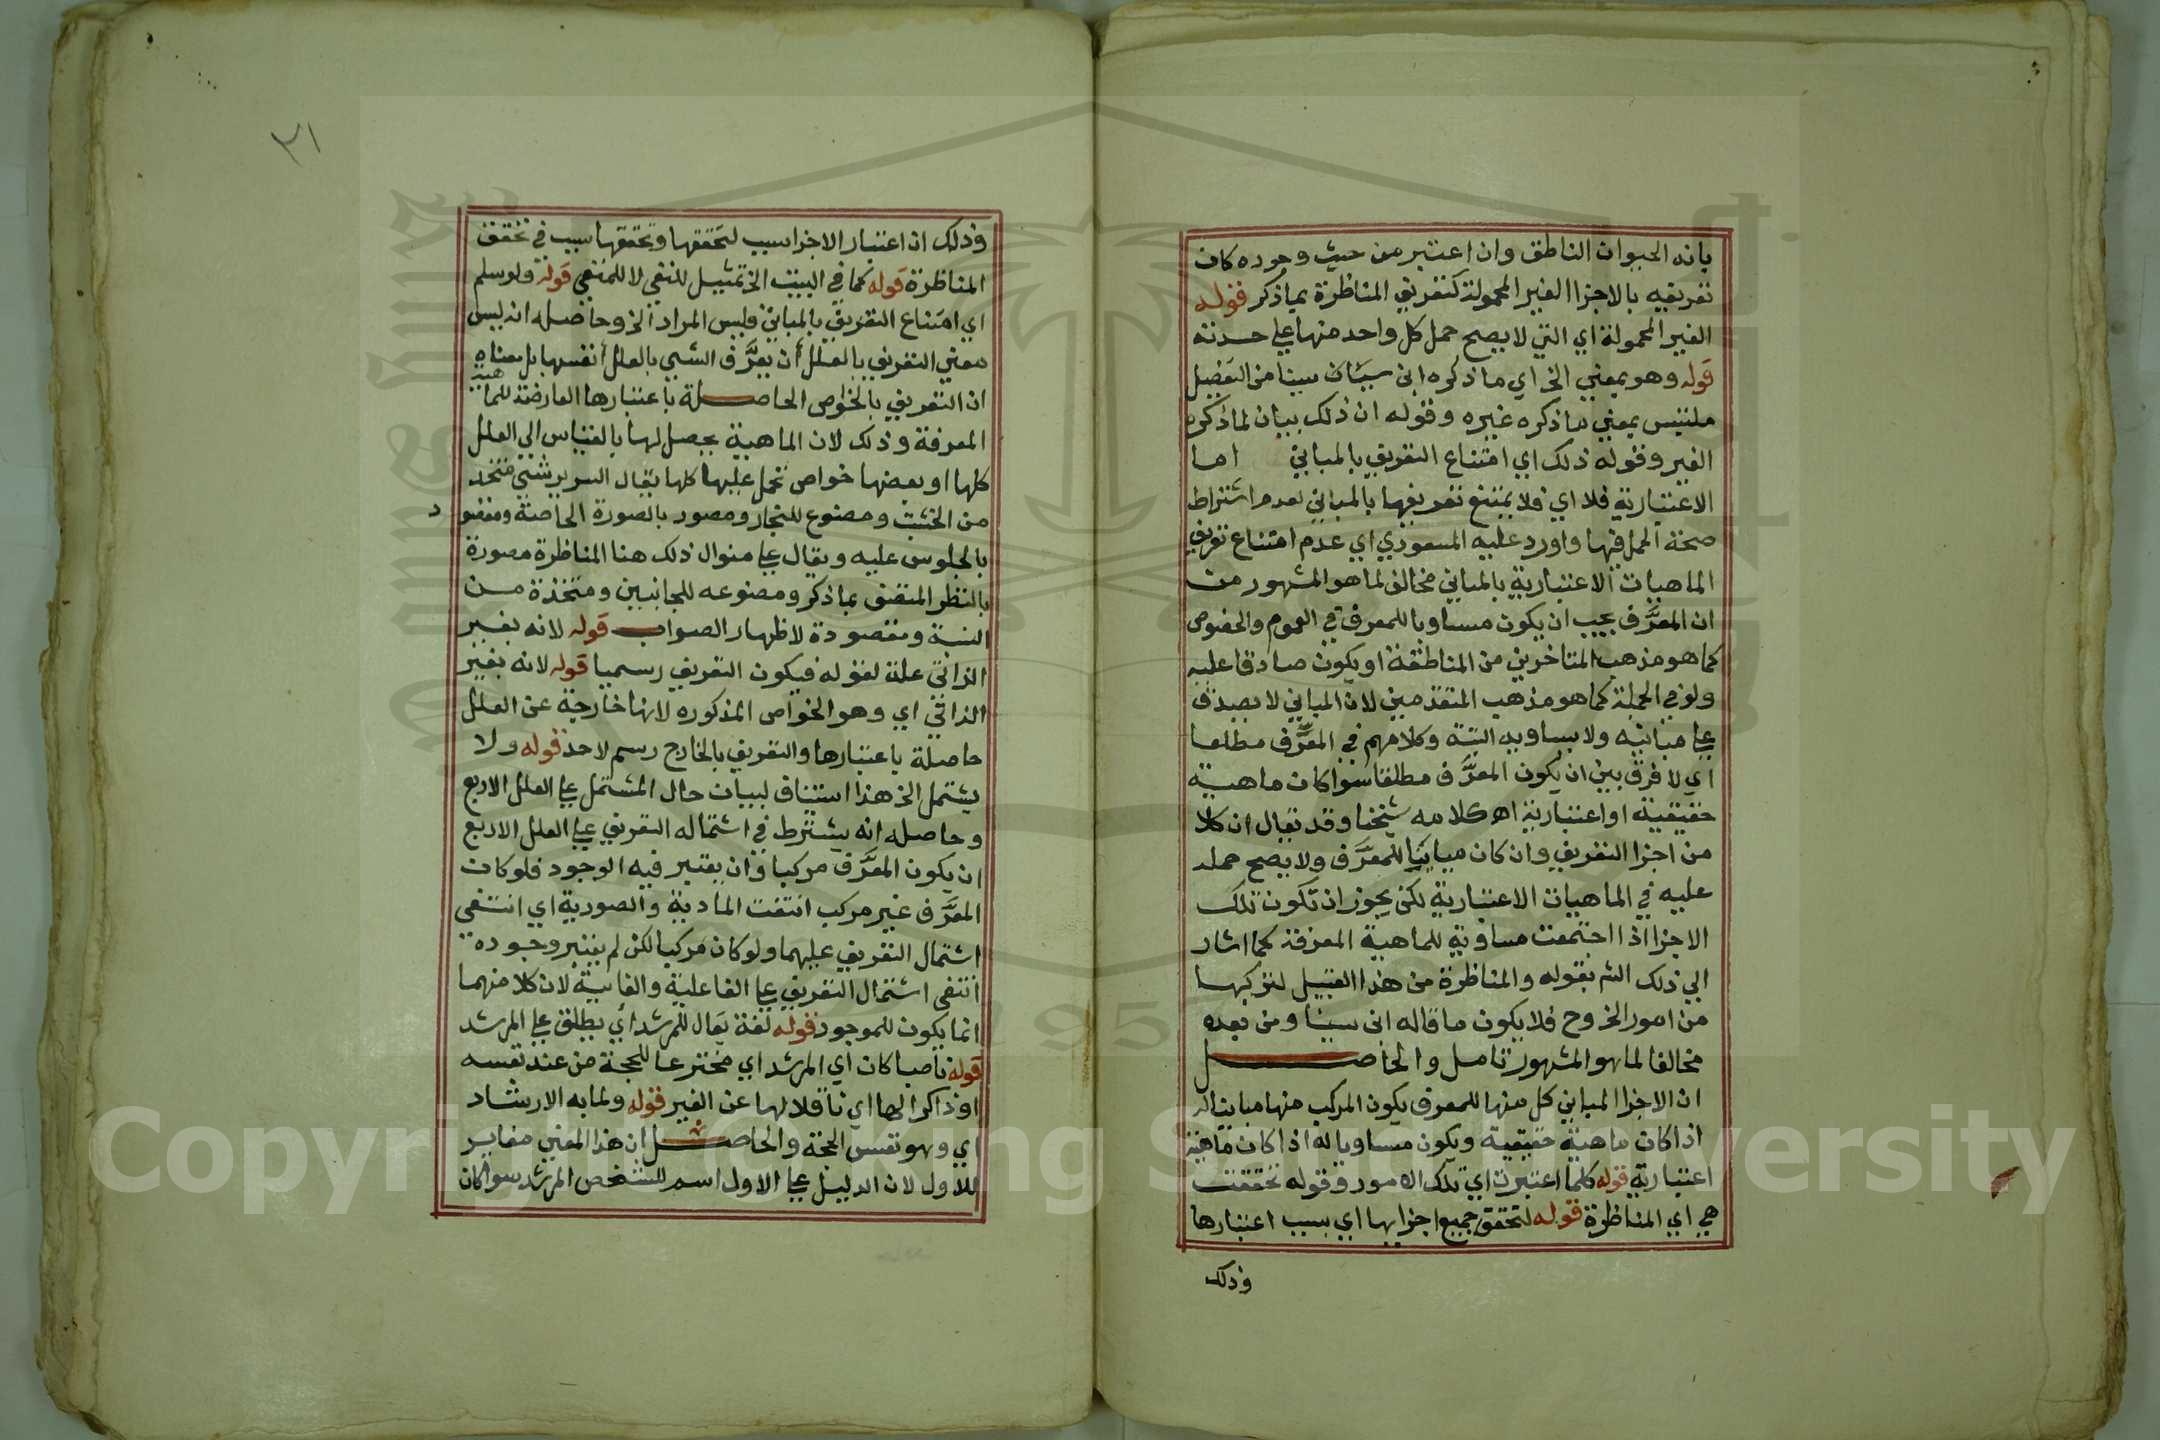 بانه الحيوان الناطق وان اعتبر من حيث وجوده كان
تعريفه بالاجزا الغير المحمولة كتعريف المناظرة بما ذكر قوله
الغير المحمولة اي التي لا يصح حمل كل واحد منها علي حدته
قوله وهو بمعني الخ اي ما ذكره ابن سينا من التفصيل
ملتبس بمعني ما ذكره غيره وقوله ان ذلك بيان لما ذكره
الغير وقوله ذلك اي امتناع التعريف بالمباين اما
الاعتبارية فلا اي فلا يمتنع تعريفها بالمباين لعدم اشتراط
صحة الحمل فيها واورد عليه المسعودي اي عدم امتناع تعريف
الماهيات الاعتبارية بالمباين مخالف لما هو المشهور من
ان المعرَّف يجب ان يكون مساويا للمعرف في العموم والخصوص
كما هو مذهب المتاخرين من المناطقة او يكون صادقا عليه
ولو في الجملة كما هو مذهب المتقدمين لان المباين لا يصدق
علي مباينه ولا يساويه البتة وكلامهم في المعرِّف مطلقا
اي لا فرق بين ان يكون المعرَّف مطلقا سوا كان ماهية
حقيقية او اعتبارية اه كلامه شيخنا وقد يقال ان كلا
من اجزا التعريف وان كان مباينا للمعرَّف ولا يصح حمله
عليه في الماهيات الاعتبارية لكن يجوز ان تكون تلك
الاجزا اذا اجتمعت مساوية للماهية المعرفة كما اشار
الي ذلك الش بقوله والمناظرة من هذا القبيل لتركبها
من امور الخ وح فلا يكون ما قاله ابن سينا ومن بعده
مخالفا لما هو المشهور تامل والحاصل
ان الاجزا المباين كل منها للمعرف يكون المركب منها مباينا له
اذا كان ماهية حقيقية ويكون مساويا له اذا كان ماهية
اعتبارية قوله كلما اعتبرت اي تلك الامور وقوله تحققت
هي اي المناظرة قوله لتحقق جميع اجزايها اي بسبب اعتبارها
وذلك
٣١
وذلك ان اعتبار الاجزا سبب لتحققها وتحققها سبب في تحقق
المناظرة قوله كما في البيت الخ تمثيل للنفي لا للمنفي قوله ولو سلم
اي امتناع التعريف بالمباين وليس المراد الخ وحاصله انه ليس
معني التعريف بالعلل أن يعرَّف الشي بالعلل أنفسها بل معناه
ان التعريف بالخواص الحاصلة باعتبارها العارضة للماهية
المعرفة وذلك لان الماهية يحصل لها بالقياس الي العلل
كلها او بعضها خواص تحمل عليها كلها يقال السرير شي متخذ
من الخشب ومصنوع للنجار ومصور بالصورة الخاصة ومقصود
بالجلوس عليه ويقال علي منوال ذلك هنا المناظرة مصورة
بالنظر المتصف بما ذكر ومصنوعه للجانبين ومتخذة من
النسبة ومقصودة لاظهار الصواب قوله لانه بغير
الذاتي علة لقوله فيكون التعريف رسميا قوله لانه بغير
الذاتي اي وهو الخواص المذكوره لانها خارجة عن العلل
حاصلة باعتبارها والتعريف بالخارج رسم لا حد قوله ولا
يشتمل الخ هذا استيناف لبيان حال المشتمل علي العلل الاربع
وحاصله انه يشترط في اشتماله التعريف علي العلل الاربع
ان يكون المعرَّف مركبا وان يعتبر فيه الوجود فلو كان
المعرَّف غير مركب انتفت المادية والصورية اي انتفي
اشتمال التعريف عليهما ولو كان مركبا لكن لم يعتبر وجوده
انتفي اشتمال التعريف علي الفاعلية والغايية لان كلا منهما
انما يكون للموجود قوله لغة يقال للمرشد أي يطلق علي المرشد
قوله ناصبا كان اي المرشد اي مخترعا للحجة من عند نفسه
او ذاكرا لها اي ناقلا لها عن الغير قوله ولما به الارشاد
اي وهو نفس الحجة والحاصل ان هذا المعني مغاير
للاول لان الدليل علي الاول اسم للشخص المرشد سوا كان
Copyright © King Saud University